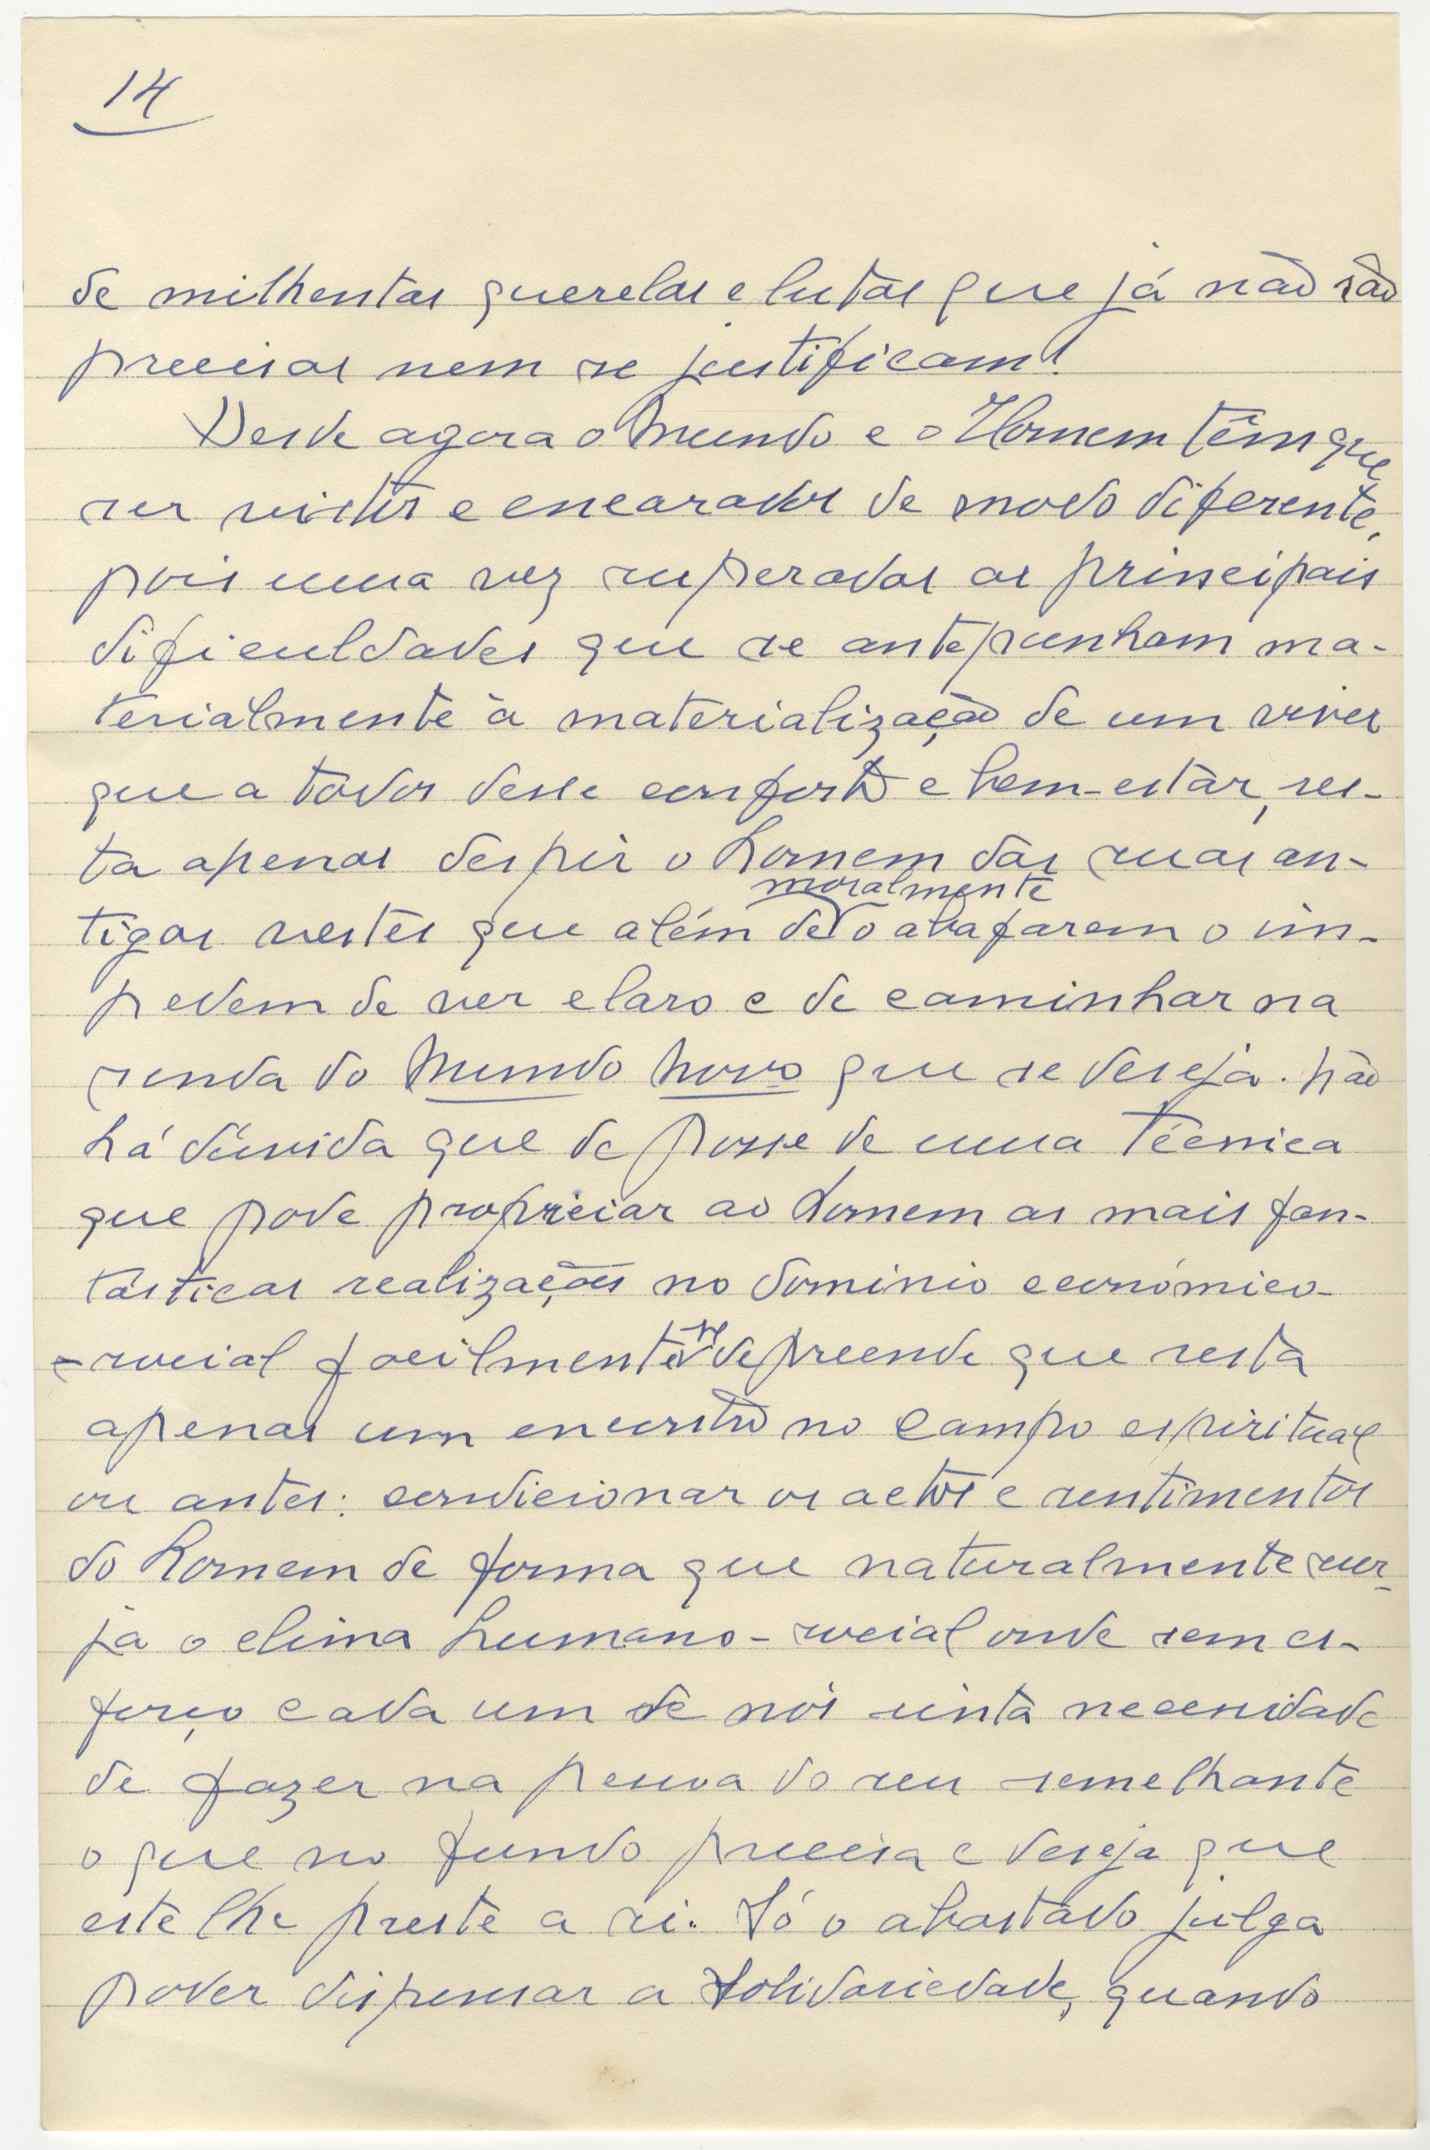 14
de milhentas querelas e lutas que já não são
precisas nem se justificam!
Desde agora o Mundo e o Homem têm que
ser vistos e encarados de modo diferente,
pois uma vez superadas as principais
dificuldades que se antepunham ma-
terialmente à materialização de um viver
que a todos desse conforto e bem-estar, res-
ta apenas despir o homem das suas an-
moralmente
tigas vestes que além de o abafarem o im-
pedem de ver claro e de caminhar na
senda do Mundo Novo que se deseja. Não
há dúvida que de posse de uma técnica
que pode propiciar ao homem as mais fan-
tásticas realizações no domínio económico-
-social facilmente se depreende que resta
apenas um encontro no campo espiritual
ou antes: condicionar os actos e sentimentos
do homem de forma que naturalmente sur-
ja o clima humano-social onde sem es-
forço cada um de nós sinta necessidade
de fazer na pessoa do seu semelhante
o que no fundo precisa e deseja que
este lhe preste a si. Só o abastado julga
poder dispensar a Solidariedade, quando